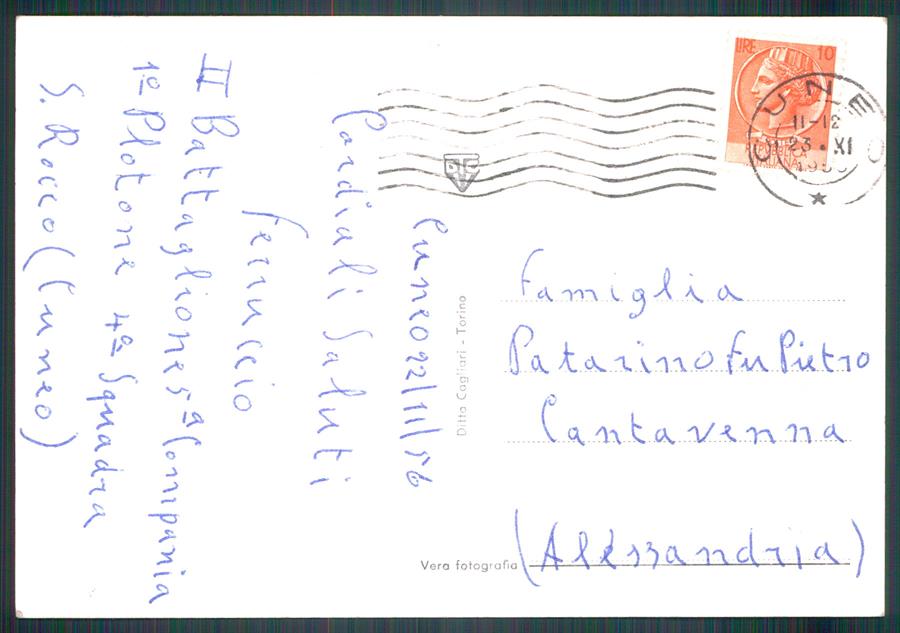 Cuneo 22/11/56
Cordiali Saluti
Ferruccio
II Battaglione 5ª Compania
1º Plotone 4ª Squadra
S. Rocco (Cuneo)
Ditta Cagliari - Torino
Vera fotografia
LIRE 10
REPUBBLICA
ITALIANA
CUNEO
11-12
23 . XI
Famiglia
Patarino Fu Pietro
Cantavenna
(Alessandria)